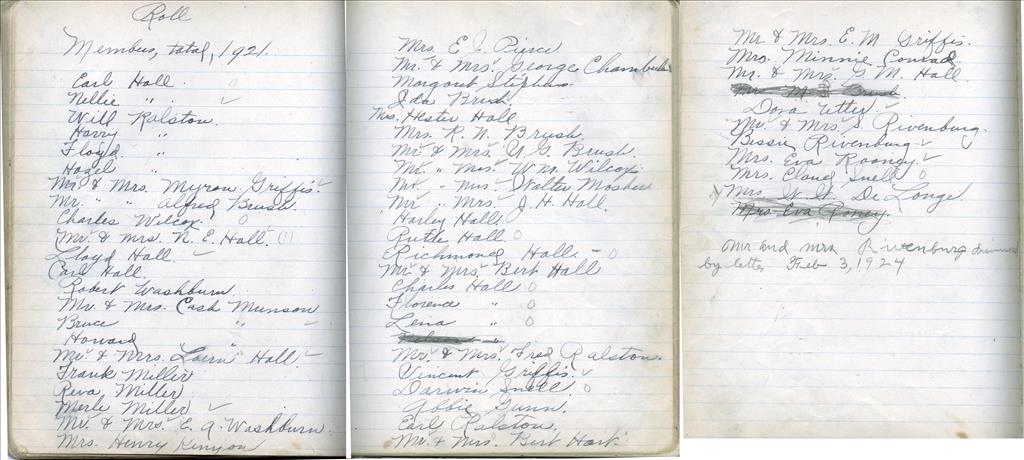 Roll
Members, total, 1921.
Earl Hall
Nellie "
Will Ralston.
Harry "
Floyd "
Hazel "
Mr. & Mrs. Myron Griffis.
Mr. " " Alfred Brush.
Charles Wilcox.
Mr. & Mrs. N. E. Hall.
Lloyd Hall.
Carl Hall.
Robert Washburn.
Mr. & Mrs. Cash Munson
Bruce "
Howard "
Mr. & Mrs. Loern Hall.
Frank Miller
Reva Miller
Merle Miller
Mr. & Mrs. E. A. Washburn.
Mrs. Henry Kenyon
Mrs. E. J. Pierce
Mr. & Mrs. George Chamberlain
Margaret Stephens.
Ida Brush
Mrs. Hester Hall
Mrs. R. N. Brush
Mr. & Mrs. U. G. Brush.
Mr. " Mrs. Wm. Wilcox
Mr. " Mrs. Walter Mosher
Mr. " Mrs. J. H. Hall.
Harley Hall
Ruth Hall
Richmond Hall
Mr. & Mrs. Bert Hall
Charles Hall
Florence "
Lena "
Mr. & Mrs. Fred Ralston.
Vincent Griffis.
Darwin Snell
Abbie Gunn.
Earl Ralston,
Mr. & Mrs. Bert Hart
Mr. & Mrs. E. M. Griffis.
Mrs. Minnie Conrad
Mr. & Mrs. G. M. Hall
Dora Utter
Mr. & Mrs. S. Rivenburg.
Bessie Rivenburg
Mrs. Eva Rooney.
Mrs. Claud Snell
Mrs. W. W. De Longe
Mrs. Eva Roney.
Mr and Mrs Rivenburg
by letter Feb 3, 1924